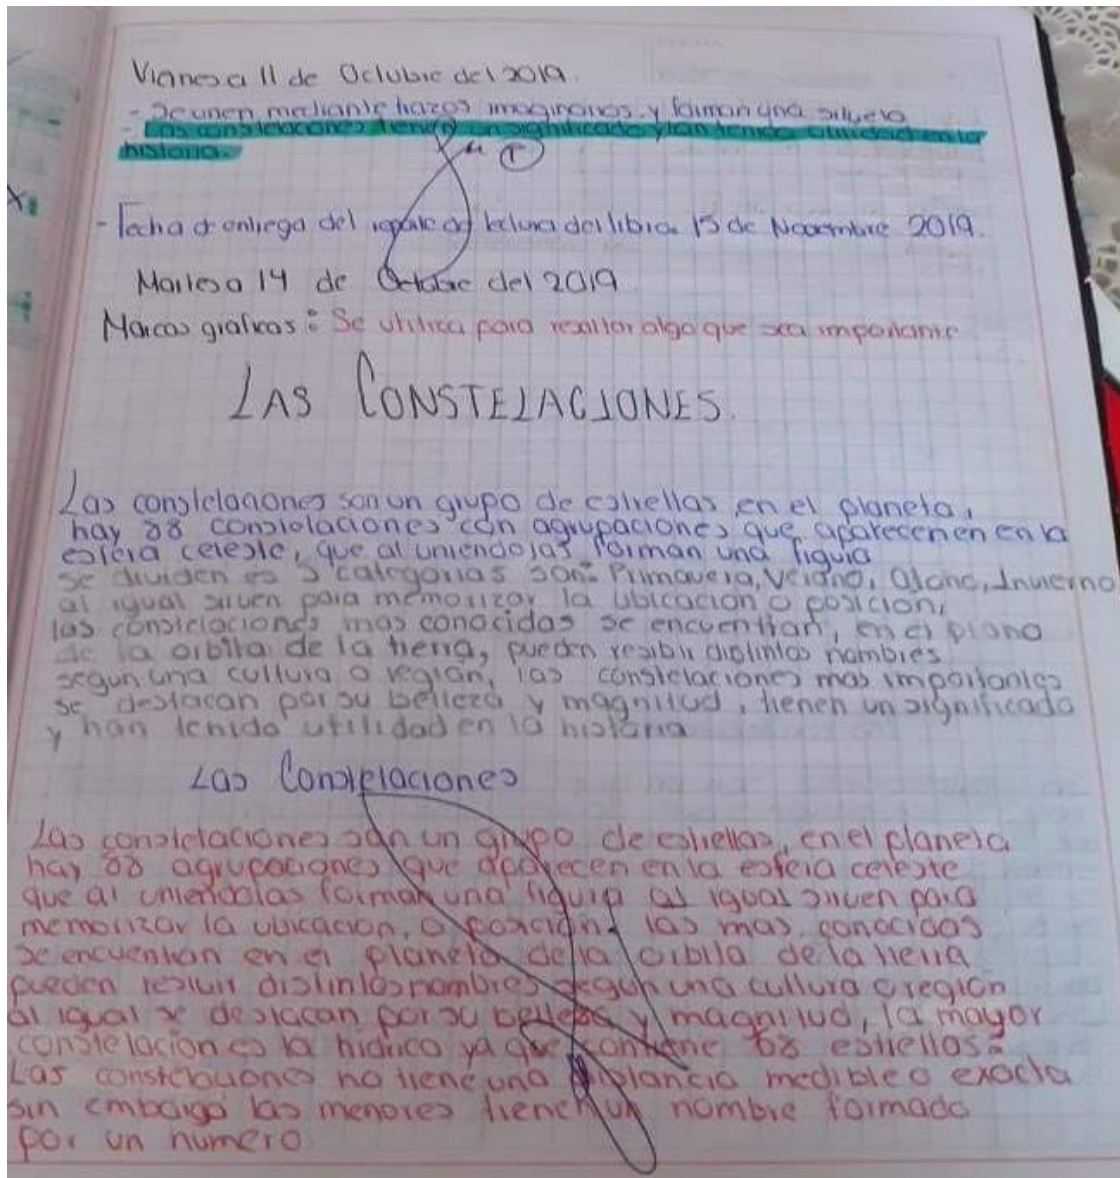 Viernes a 11 de Octubre del 2019.
- Se unen mediante trazos imaginarios y forman una silueta
- Las constelaciones tienen un significado y han tenido utilidad en la
historia.
- Fecha de entrega del reporte de lectura del libro. 15 de Noviembre 2019.
Martes a 14 de Octubre del 2019
Marcas graficas: Se utiliza para resaltar algo que sea importante
LAS CONSTELACIONES.
Las constelaciones son un grupo de estrellas en el planeta,
hay 88 constelaciones con agrupaciones que aparecen en en la
esfera celeste, que al uniendolas forman una figura
se dividen es 5 categorias son: Primavera, Verano, Otono, Invierno
al igual sirven para memorizar la ubicacion o posicion,
las constelaciones mas conocidas se encuentran, en el plano
de la orbita de la tierra, pueden resibir distintos nombres
segun una cultura o region, las constelaciones mas importantes
se destacan por su belleza y magnitud, tienen un significado
y han tenido utilidad en la historia
Las Constelaciones
Las constelaciones son un grupo de estrellas, en el planeta
hay 88 agrupaciones que aparecen en la esfera celeste
que al uniendolas forman una figura al igual sirven para
memorizar la ubicacion, o posicion. las mas conocidas
se encuentran en el planeta de la orbita de la tierra
pueden resivir distintos nombres segun una cultura o region
al igual se destacan por su belleza y magnitud, la mayor
constelacion es la hidrico ya que contiene 68 estrellas:
Las constelaciones no tiene una distancia medible o exacta
sin embargo las menores tienen un nombre formado
por un numero